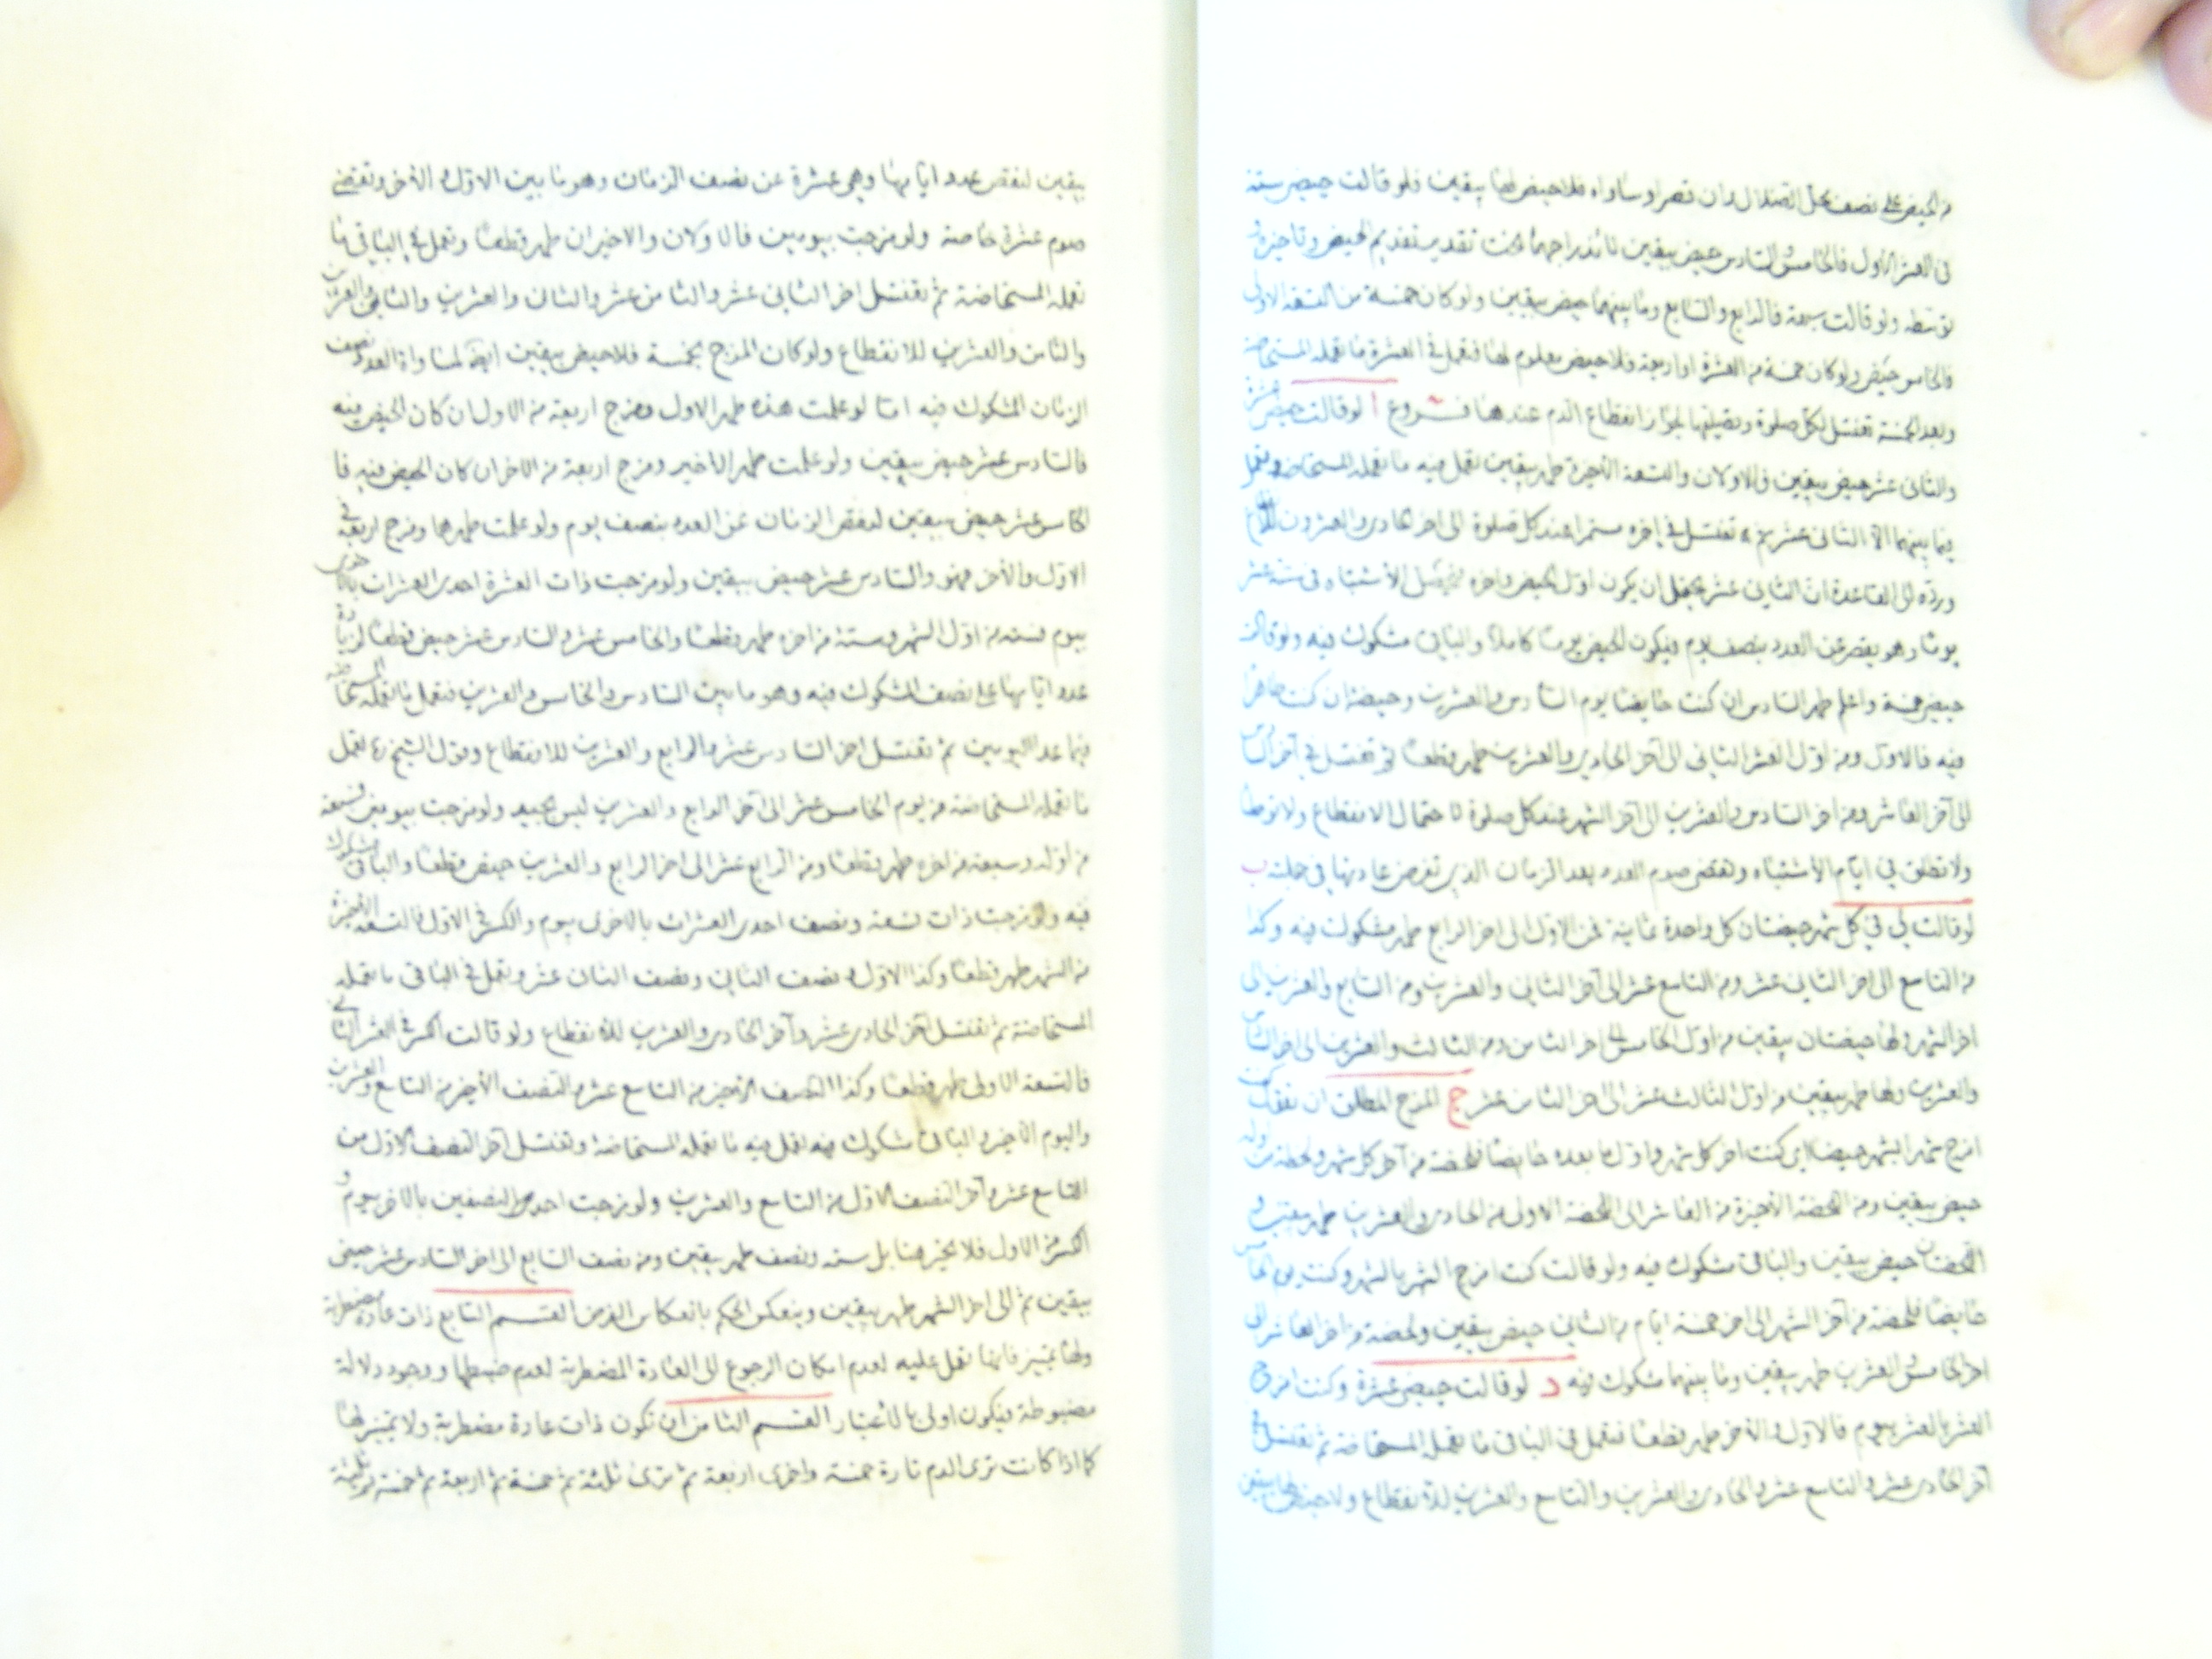 من الحيض على نصف محل الضلال وان قصر او ساواه فلا حيض لها بيقين فلو قالت حيضي ستة
في العشر الاول فالخامس والسادس حيض بيقين لاندراجهما تحت تقدير تقديم الحيض وتاخيره و
توسطه ولو قالت سبعة فالرابع والسابع وما بينهما حيض بيقين ولو كان خمسة من التسعة الاولى
فالخامس حيض ولو كان خمسة من العشرة او اربعة فلا حيض معلوم لها فتعمل في العشرة ما تعمله المستحاضة
وبعد الخمسة تغتسل لكل صلوة وتصليها لجواز انقطاع الدم عندها فروع ا لو قالت حيضي عشرة
والثاني عشر حيض بيقين فالاولان والتسعة الاخيرة طهر بيقين تعمل فيه ما تعمله المستحاضة وتعمل
فيما بينهما الا الثاني عشر ثم تغتسل في اخره مستمرا عند كل صلوة الى اخر الحادي والعشرون للانقطاع
ورده الى القاعدة ان الثاني عشر يحتمل ان يكون اول الحيض واخره الاشتباه في ستة عشر
يوما وهو يقصر عن العدد بنصف يوم فيكون الحيض يوما كاملا والباقي مشكوك فيه ولو قالت
حيضي خمسة واعلم طهر السادس ان كنت حايضا يوم السادس والعشرين وحيضه ان كنت طاهرا
فيه فالاول ومن اول العشر الثاني الى آخر الحادي والعشرين طهر قطعا ثم تغتسل في آخر السادس
الى آخر العاشر ومن اخر السادس والعشرين الى آخر الشهر عند كل صلوة لاحتمال الانقطاع ولا توطأ
ولا تطلق في ايام الاشتباه وتقضي صوم العدد بعد الزمان الذي تفرض عادتها في جلته ب
لو قالت لي في كل شهر حيضتان كل واحدة ثمانية فمن الاول الى اخر الرابع طهر مشكوك فيه وكذا
من التاسع الى اخر الثاني عشر ومن التاسع عشر الى آخر الثاني والعشرين ومن السابع والعشرين الى
اخر الشهر ولها حيضتان بيقين من اول الخامس الى اخر الثامن ومن الثالث والعشرين الى اخر السادس
والعشرين ولها طهر بيقين من اول الثالث عشر الى اخر الثامن عشر ج المزج المطلق ان تقول كنت
امزج شهرا بشهر حيضا اي كنت اخر كل شهر واول ما بعده حايضا فلحظة من آخر كل شهر ولحظة من اوله
حيض بيقين ومن اللحظة الاخيرة من العاشر الى اللحظة الاولى من الحادي والعشرين طهر بيقين و
اللحظتان حيض بيقين والباقي مشكوك فيه ولو قالت كنت امزج الشهر بالشهر وكنت يوم الخامس
حايضا فلحظة من آخر الشهر الى اخر خمسة ايام من الثاني حيض بيقين ولحظة من اخر العاشر الى
اخر الخامس والعشرين طهر بيقين وما بينهما مشكوك فيه د لو قالت حيضي عشرة وكنت امزج
العشر بالعشر بيوم فالاول والاخر طهر قطعا فتعمل في الباقي ما تعمل المستحاضة ثم تغتسل في
آخر الحادي عشر والتاسع عشر والحادي والعشرين والتاسع والعشرين للانقطاع ولا حيض لها بيقين
بيقين لنقص عدد ايامها وهي عشرة عن نصف الزمان وهو ما بين الاول والاخر وتقضي
صوم عشرة خاصة ولو مزجت بيومين فالاولان والاخيران طهر قطعا وتعمل في الباقي ما
تعمله المستحاضة ثم تغتسل اخر الثاني عشر والثامن عشر والثاني والعشرين والثامن والعشرين
والثامن والعشرين للانقطاع ولو كان المزج بخمسة فلا حيض بيقين ايضا لمساواة العدد نصف
الزمان المشكوك فيه اما لو علمت هذه طهر الاول ومزج اربعة من الاول ان كان الحيض فيه
فالسادس عشر حيض بيقين ولو علمت طهر الاخير ومزج اربعة من الاخر ان كان الحيض فيه فا
لخامس عشر حيض بيقين لنقص الزمان عن العدد بنصف يوم ولو علمت طهرهما ومزج اربعة في
الاول والاخر فهو والسادس عشر حيض بيقين ولو مزجت ذات العشرة احدى العشرات بالاخرى
بيوم فستة من اول الشهر وستة من اخره طهر قطعا والخامس عشر والسادس عشر حيض قطعا لزيادة
عدد ايامها على نصف المشكوك فيه وهو ما بين السادس والخامس والعشرين فتعمل ما تعمله المستحاضة
فيما عدا اليومين ثم تغتسل اخر السادس عشر والرابع والعشرين للانقطاع وقول الشيخ ره تعمل
ما تعمله المستحاضة من يوم الخامس عشر الى آخر الرابع والعشرين ليس بجيد ولو مزجت بيومين فسبعة
من اوله وسبعة من اخره طهر قطعا ومن الرابع عشر الى اخر الرابع والعشرين حيض قطعا والباقي مشكوك
فيه ولو مزجت ذات تسعة ونصف احدى العشرات بالاخرى بيوم والكسر في الاول فالتسعة الاخيرة
من الشهر طهر قطعا وكذا الاول ونصف الثاني ونصف الثان عشر وتعمل في الباقي ما تعمله
المستحاضة ثم تغتسل آخر الحادي عشر وآخر الحادي والعشرين للانقطاع ولو قالت الكسر في العشر الثاني
فالتسعة الاولى طهر قطعا وكذا النصف الاخير من التاسع عشر والنصف الاخير من التاسع والعشرين
واليوم الاخير والباقي مشكوك فيه تعمل فيه ما تعمله المستحاضة وتغتسل آخر النصف الاول من
التاسع عشر وآخر النصف الاول من التاسع والعشرين ولو مزجت احد النصفين بالاخر بيوم و
الكسر من الاول فلا تحيز هنا بل ستة ونصف طهر بيقين ومن نصف السابع الى اخر السادس عشر حيض
بيقين ثم الى اخر الشهر طهر بيقين وينعكس الحكم بانعكاس الفرض القسم السابع ذات عادة مضطربة
ولها تميز فانها تعمل عليه لعدم امكان الرجوع الى العادة المضطربة لعدم ضبطها ووجود دلالة
مضبوطة فيكون اولى بالاعتبار القسم الثامن ان تكون ذات عادة مضطربة ولا تميز لها
كما اذا كانت ترى الدم تارة خمسة واخرى اربعة ثم ترى ثلثة ثم خمسة ثم اربعة ثم خمسة ثم ثلثة